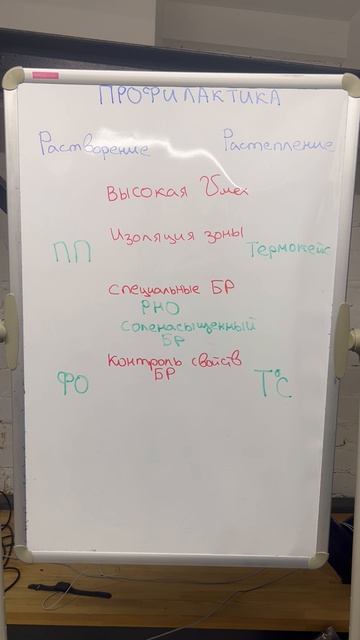 ПРОФИЛАКТИКА
Растворение Растепление
Высокая Vмех
Изоляция зоны
ПП Термокейс
специальные БР
РНО
соленасыщенный
БР
контроль свойств
БР
ФО Т°С